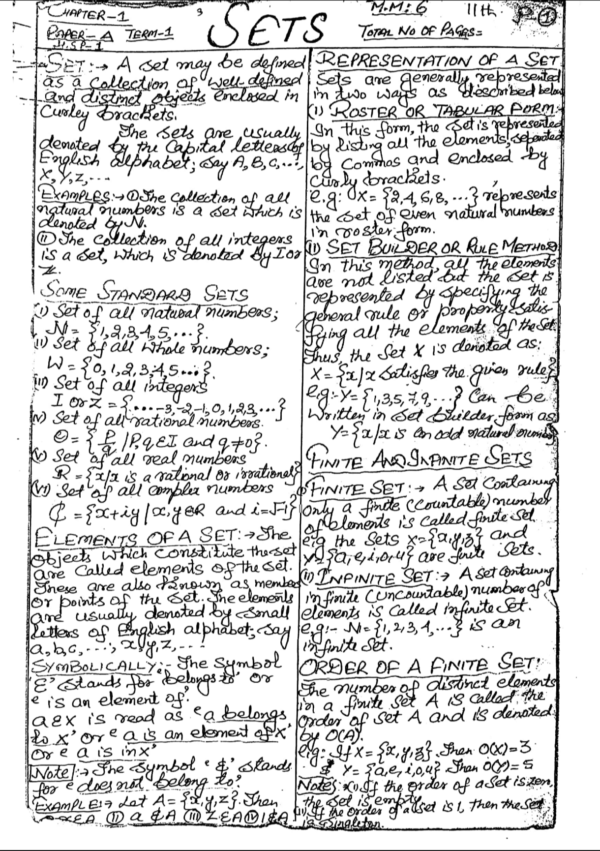 CHAPTER-1
M.M: 6
11th
P-①
PAPER-A TERM-1
SETS
TOTAL NO OF PAGES=
SET:→ A set may be defined
as a collection of well-defined
and distinct objects enclosed in
Curley brackets.
The sets are usually
denoted by the Capital letters of
English alphabet; say A, B, C, ...,
X, Y, Z, ...
EXAMPLES:→ ① The collection of all
natural numbers is a set which is
denoted by N.
(ii) The Collection of all integers
is a set, which is denoted by I or
Z.
SOME STANDARD SETS
(i) Set of all natural numbers;
N = {1,2,3,4,5,...}.
(ii) Set of all whole numbers;
W = {0,1,2,3,4,5...}.
(iii) Set of all integers
I or Z = {.....-3,-2,-1,0,1,2,3,...}
(iv) Set of all rational numbers.
Q = {P/q | P,q ∈ I and q ≠ 0}.
(v) Set of all real numbers
R = {x/x is a rational or irrational}
(vi) Set of all complex numbers
₵ = {x+iy | x,y ∈ R and i=√-1}
ELEMENTS OF A SET:→ The
objects which constitute the set
are called elements of the set.
These are also known as member
or points of the set. The elements
are usually denoted by small
letters of English alphabet; say
a, b, c, ..., x, y, z, ...
SYMBOLICALLY:- The symbol
'Ɛ' stands for 'belongs to' or
'is an element of'.
a Ɛ X is read as 'a belongs
to X' or 'a is an element of X'
or 'a is in X'
Note:→ The symbol '∉' stands
for 'does not belong to'.
EXAMPLE:→ Let A = {x,y,z}. Then
x Ɛ A (ii) a ∉ A (iii) z Ɛ A (iv) 1 ∉ A
REPRESENTATION OF A SET
Sets are generally represented
in two ways as described below
(i) ROSTER OR TABULAR FORM:-
In this form, the set is represented
by listing all the elements, separated
by Commas and enclosed by
curly brackets.
e.g: X = {2,4,6,8,...} represents
the set of even natural numbers
in roster form.
(ii) SET BUILDER OR RULE METHOD
In this method, all the elements
are not listed but the set is
represented by specifying the
general rule or property satis-
fying all the elements of the set.
Thus, the Set X is denoted as:
X = {x/x satisfies the given rule}
e.g:- Y = {1,3,5,7,9,...} Can be
written in set builder form as
Y = {x/x is an odd natural number
FINITE AND INFINITE SETS
FINITE SET:→ A Set Containing
only a finite (Countable) number
of elements is called finite set.
e.g the sets X = {x,y,z} and
Y = {a,e,i,o,u} are finite sets.
(ii) INFINITE SET:→ A set Containing
infinite (Uncountable) number of
elements is called infinite set.
e.g:- N = {1,2,3,4,...} is an
infinite set.
ORDER OF A FINITE SET:
The number of distinct elements
in a finite set A is called the
order of set A and is denoted
by O(A).
e.g: If X = {x,y,z}. Then O(X)=3
& Y = {a,e,i,o,u} Then O(Y)=5
Notes: (i) If the order of a set is zero,
the set is empty
(ii) If the order of a set is 1, then the set
is singleton.